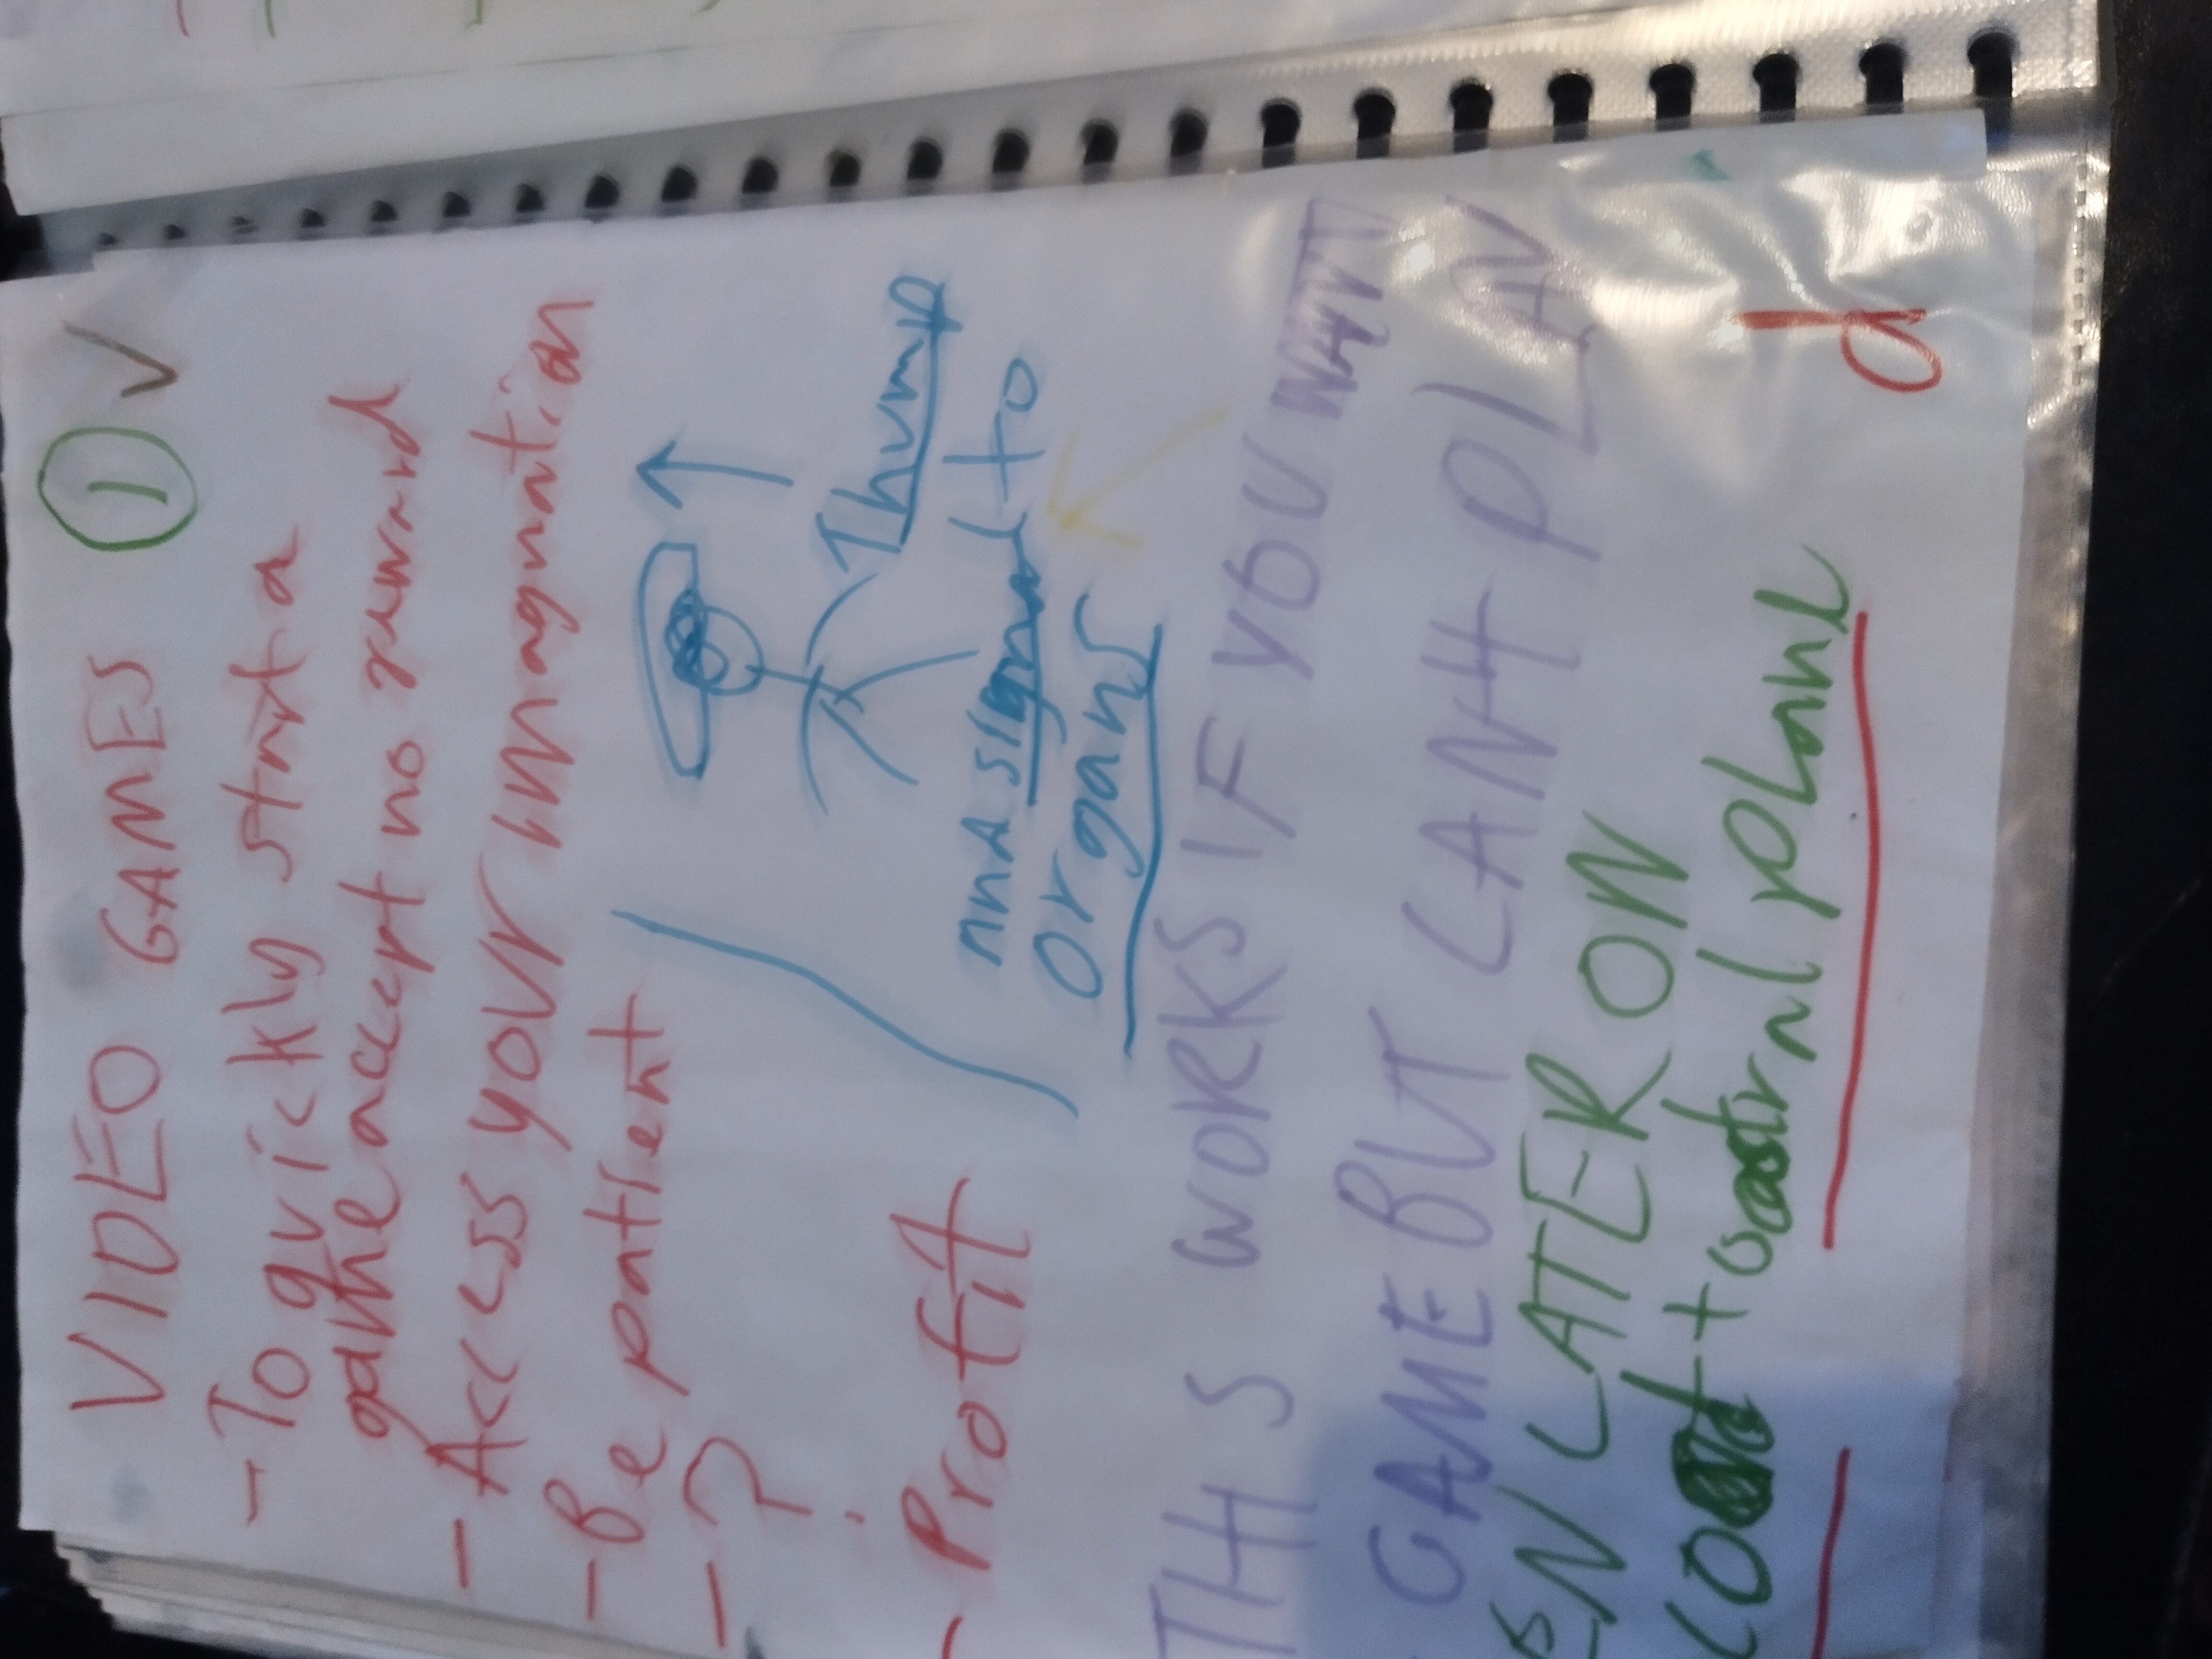 VIDEO GAMES 1 V
- To quickly start a
game accept no reward
- Access your imagnation
- Be patient
- ?
Profit
Thump
and signal to
organs
THIS WORKS IF YOU WANT
GAME BUT CANT PLAN
LATER ON
astral plane